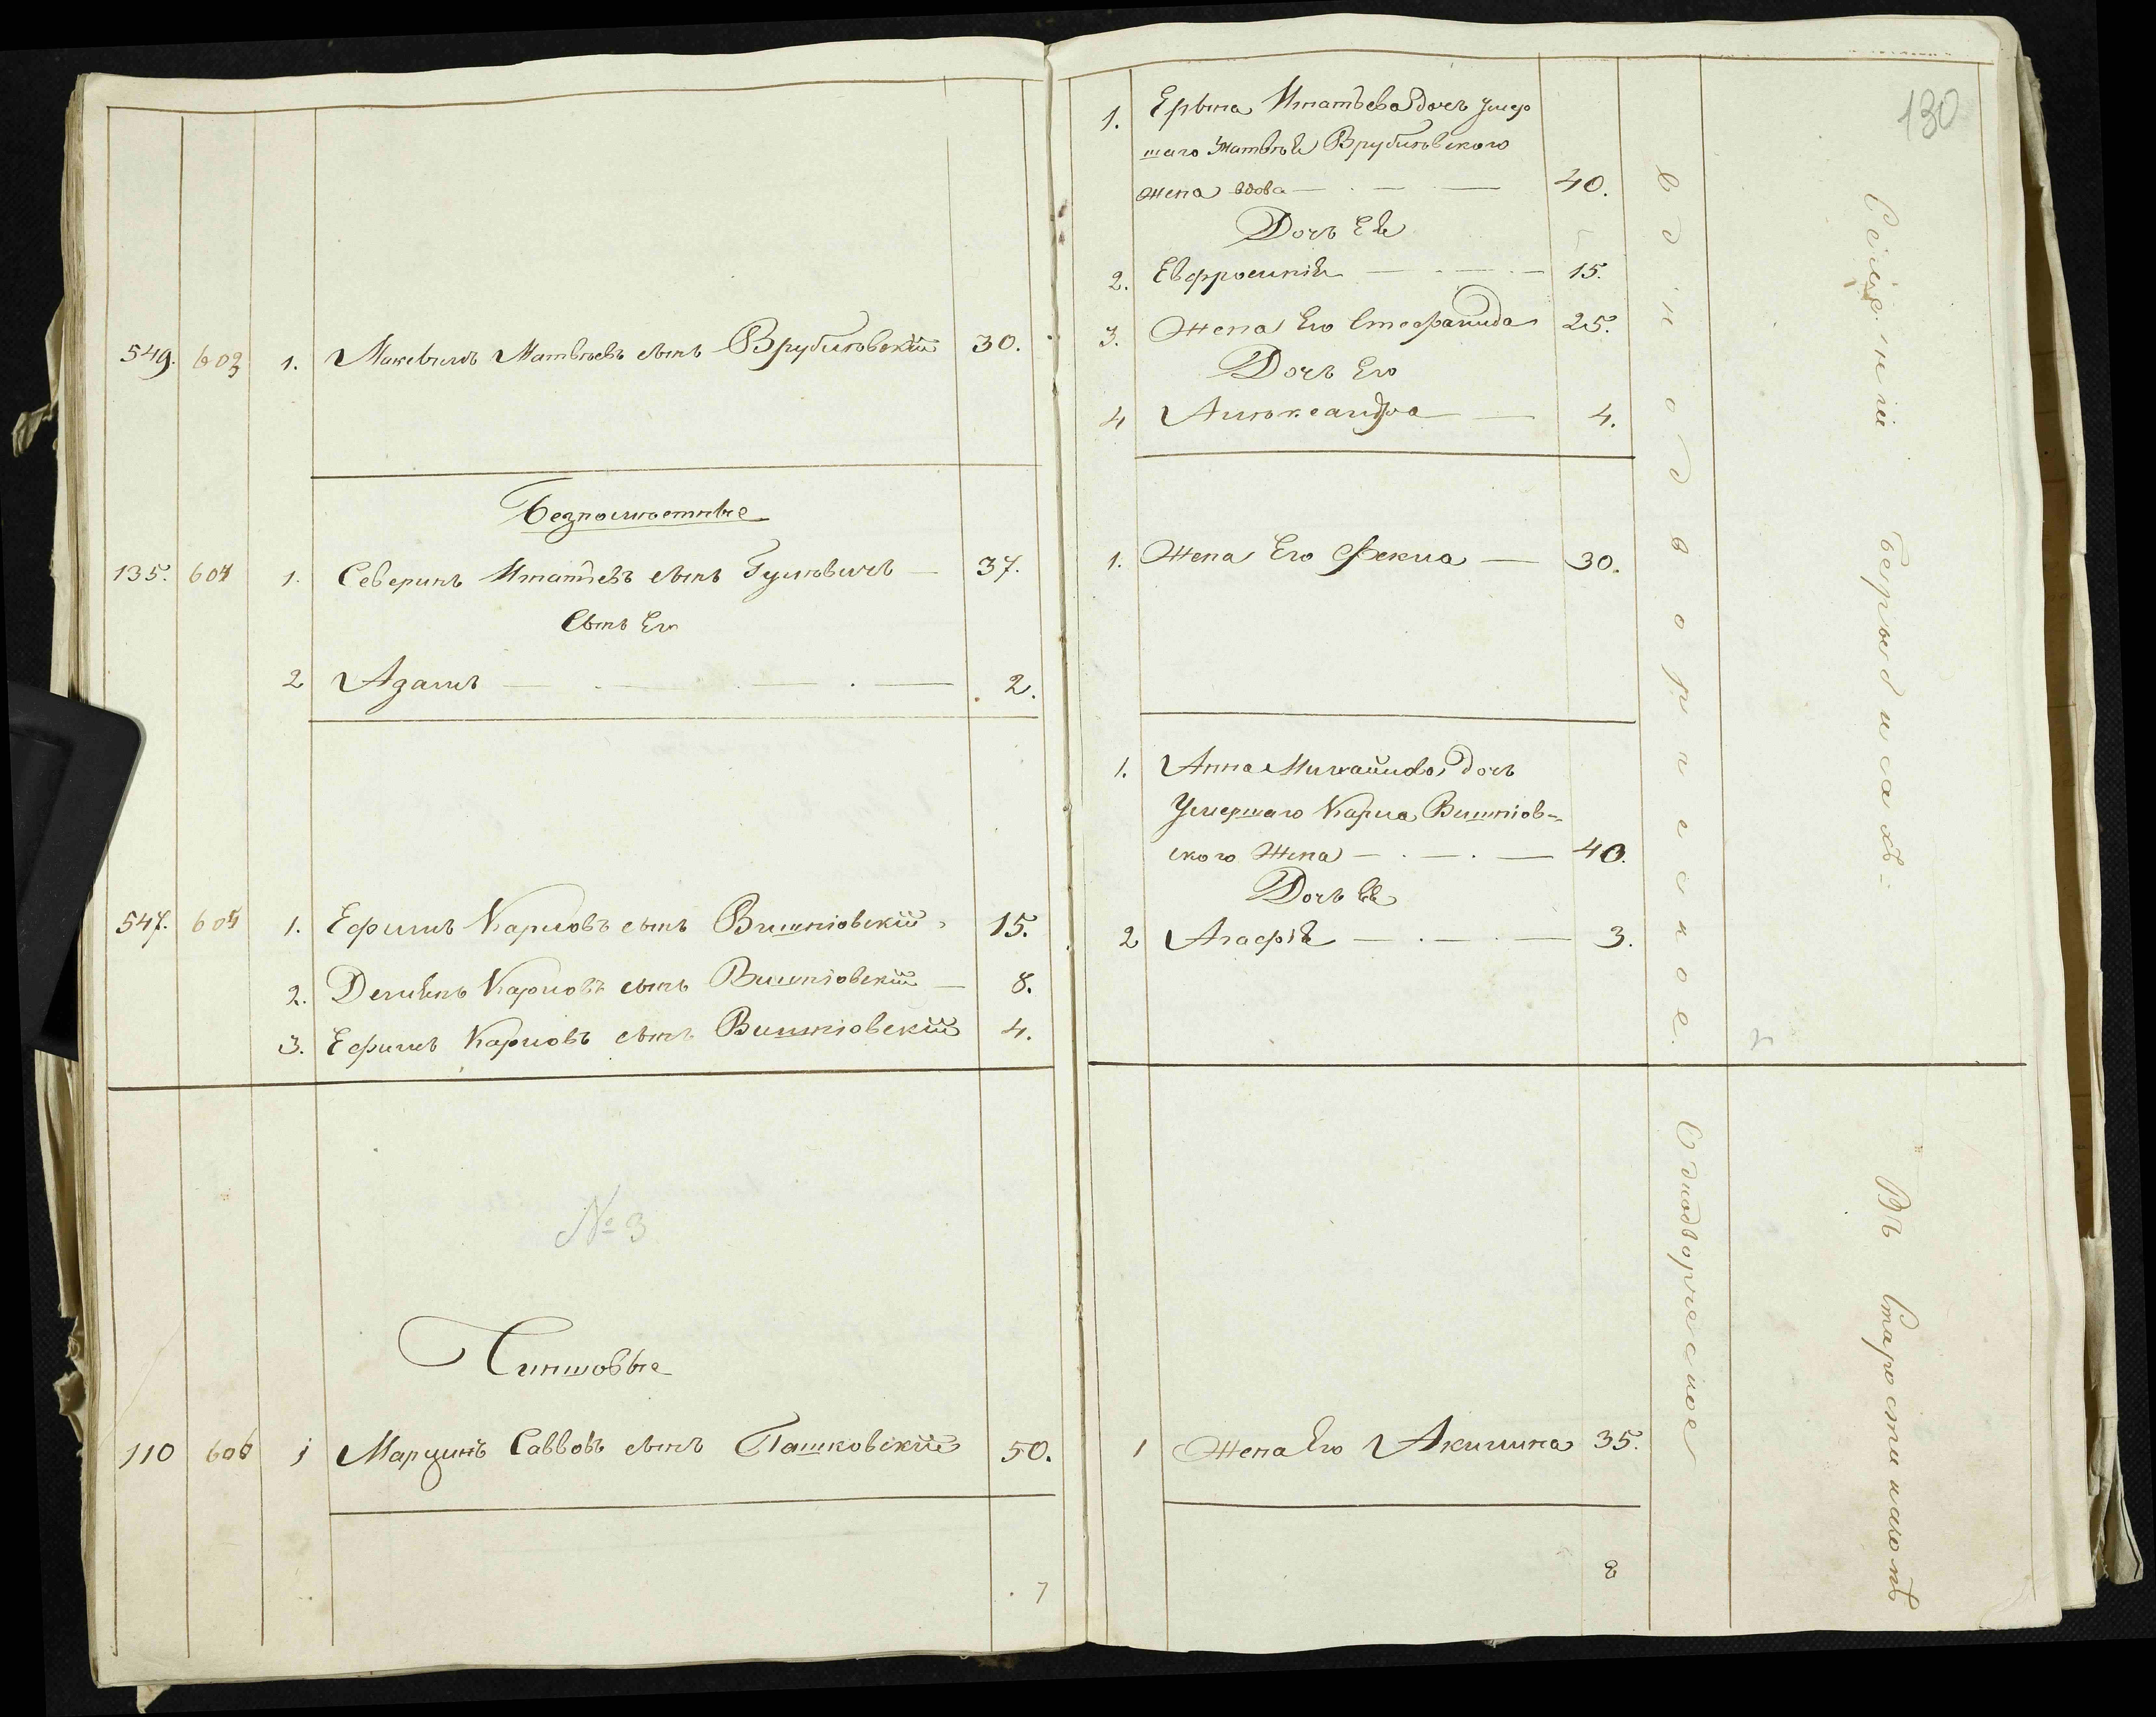 549. 603 1. Максимъ Матвѣевъ сынъ Врублѣвскій 30.
Безпомѣстные
135. 604 1. Северинъ Игнатьевъ сынъ Гулѣвичъ 37.
Сынъ Его
2 Адамъ 2.
547. 605 1. Ефимъ Карповъ сынъ Вишніовскій 15.
2. Демянъ Карповъ сынъ Вишніовскій 8.
3. Ефимъ Карповъ сынъ Вишніовскій 4.
№ 3
Чиншовые
110 606 1 Марцинъ Саввовъ сынъ Пашковскій 50.
7
130
1. Игнатьева дочь умер
шаго Матвѣя Врублѣвского
жена вдова 40.
Дочь Ея
2. Евфросинія 15.
3. Жена Его Стефанида 25.
Дочь Его
4 Алѣксандра 4.
1. Жена Его Фекла 30.
1. Анна Михайлова дочь
Умершаго Карпа Вишніов-
ского Жена 40.
Дочь Ея
2 Агафія 3.
1 Жена Его Акилина 35.
8
Однодворческое
Однодворческое
Селеніи
Въ Старостинцахъ